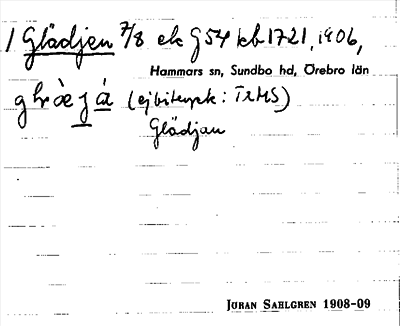 1 Glädjen 7/8 ek G54 kb 1721, 1906,
Hammars sn, Sundbo hd, Örebro län
(ej bitryck: TRMS)
Glädjan
JÖRAN SAHLGREN 1908-09